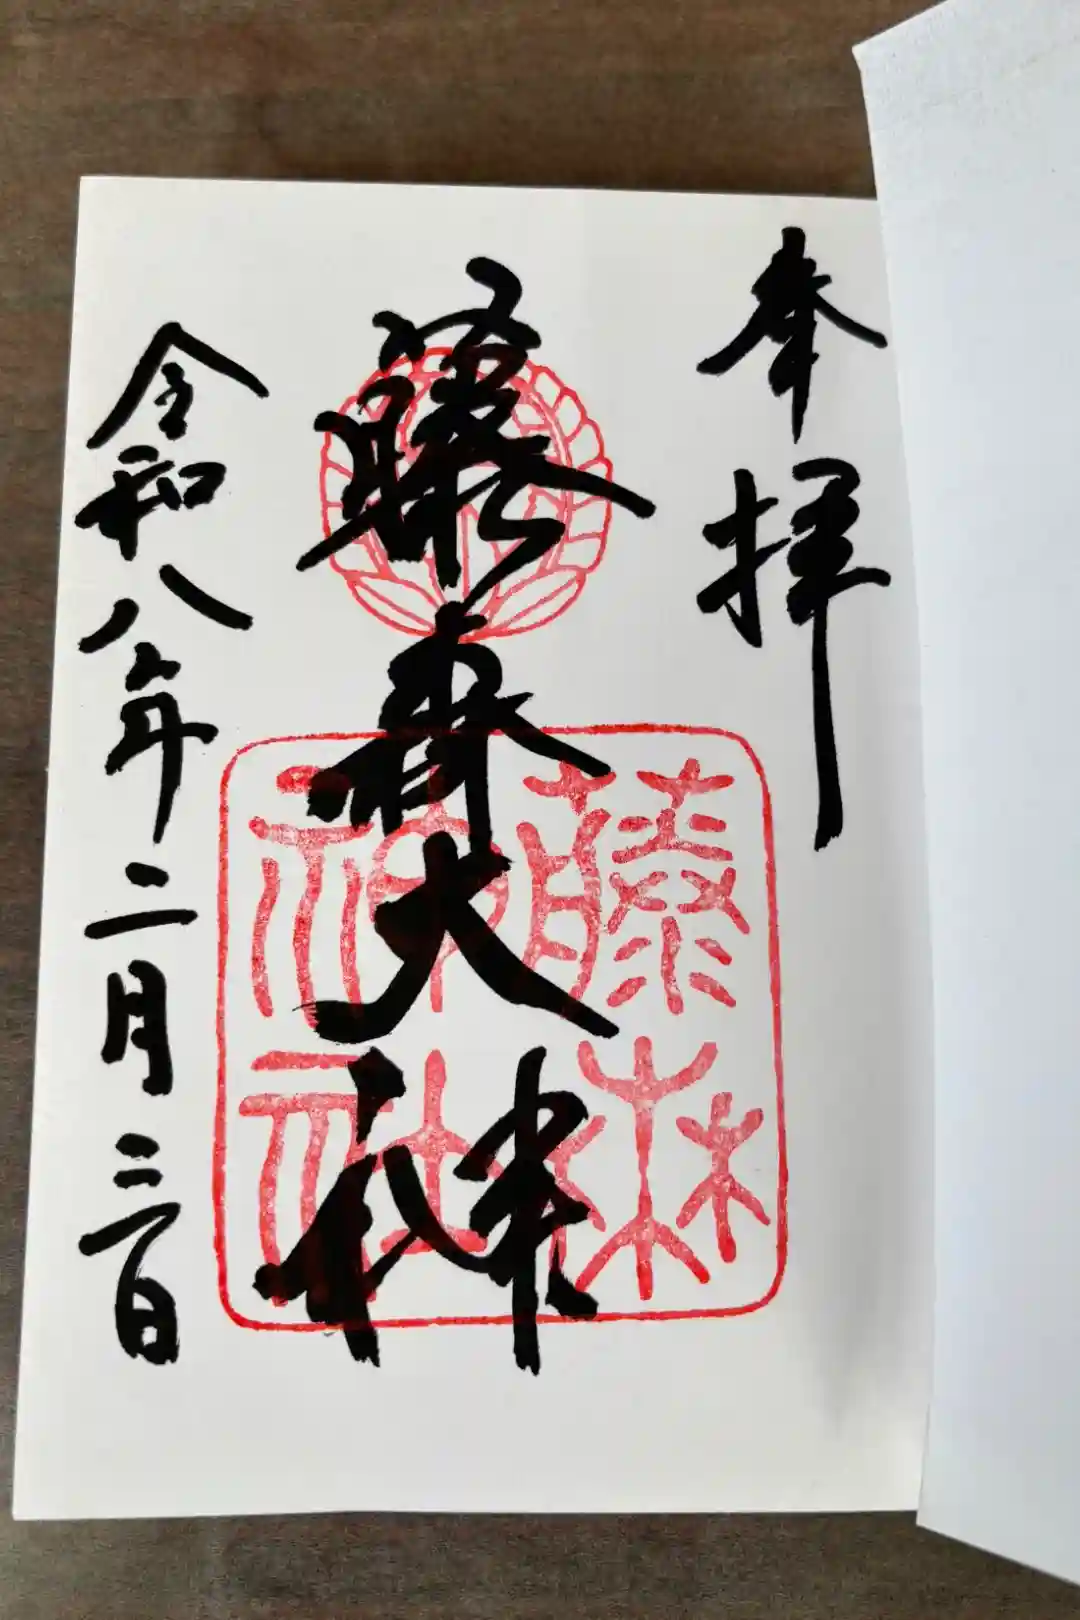 奉拝
藤森大神
藤森
神社
令和八年二月三日